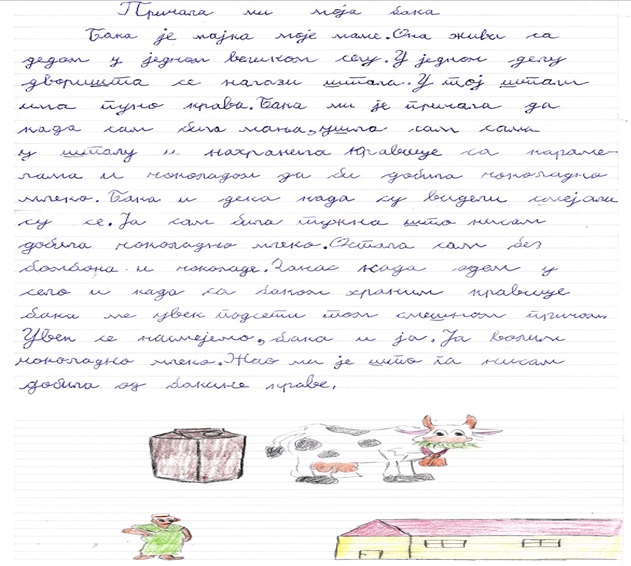 Причала ми моја бака
Бака је мајка моје маме. Она живи са
дедом у једном великом селу. У једном делу
дворишта се налази штала. У тој штали
има пуно крава. Бака ми је причала да
када сам била мања, ушла сам сама
у шталу и нахранила кравице са караме-
лама и чоколадом да би добила чоколадно
млеко. Бака и дека када су видели смејали
су се. Ја сам била тужна што нисам
добила чоколадно млеко. Остала сам без
бомбона и чоколаде. Данас када одем у
село и када са баком храним кравице
бака ме увек подсети том смешном причом.
Увек се насмејемо, бака и ја. Ја волим
чоколадно млеко. Жао ми је што га нисам
добила од бакине краве.